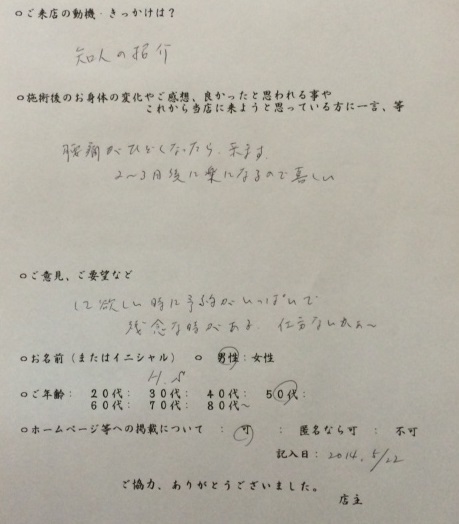 ○ご来店の動機・きっかけは？
知人の紹介
○施術後のお身体の変化やご感想、良かったと思われる事や
これから当店に来ようと思っている方に一言、等
腰痛がひどくなったら、来ます。
2～3日後に楽になるので喜しい
○ご意見、ご要望など
して欲しい時に予約がいっぱいで
残念な時がある。仕方ないかぁ～
○お名前（またはイニシャル） ○ 男性：女性
H.S
○ご年齢： 20代： 30代： 40代： 50代：
60代： 70代： 80代～
○ホームページ等への掲載について ： 可 ： 匿名なら可 ： 不可
記入日：2014.5/22
ご協力、ありがとうございました。
店主